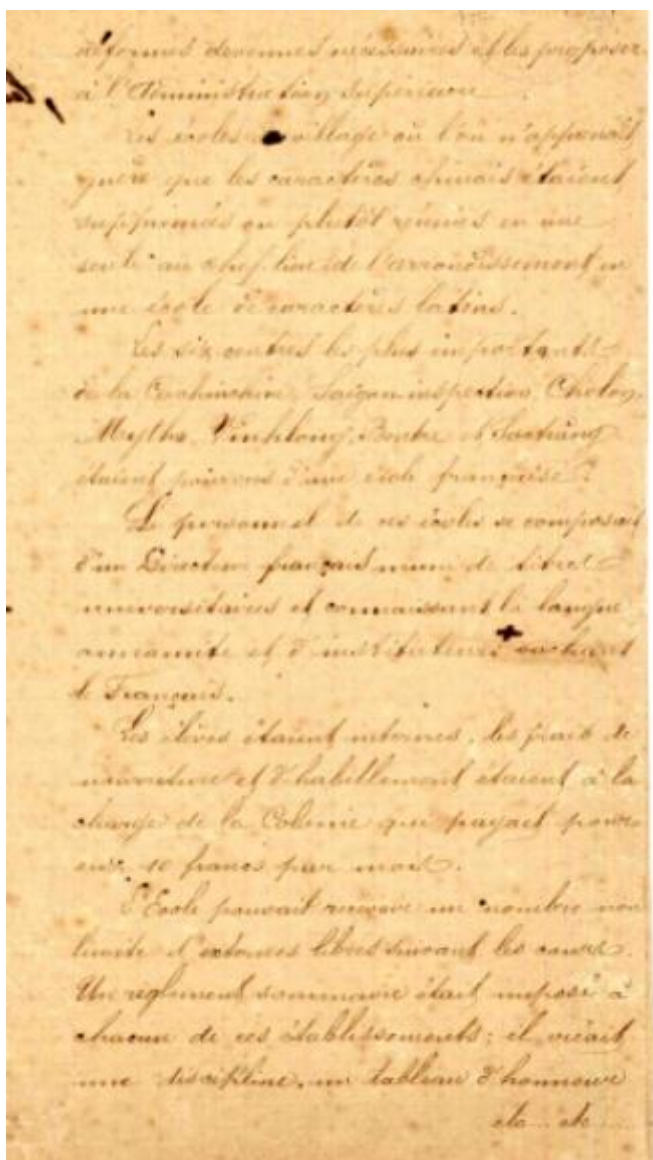 réformes devenues nécessaires et les proposer
à l'Administration supérieure.
Les écoles village où l'on n'apprenait
guère que les caractères chinois étaient
supprimées ou plutôt réunies en une
seule au chef-lieu de l'arrondissement en
une école de caractères latins.
Les six centres les plus importants
de la Cochinchine, Saigon inspection, Cholon,
Mytho, Vinhlong, Bentre et Soctrang
étaient pourvus d'une école française
Le personnel de ces écoles se composait
d'un Directeur français muni de titres
universitaires et connaissant la langue
annamite et d'instituteurs sachant
le Français.
Les élèves étaient internes, les frais de
nourriture et d'habillement étaient à la
charge de la Colonie qui payait pour
eux 10 francs par mois.
L'Ecole pouvait recevoir un nombre non
limité d'externes libres suivant les cours.
Un règlement sommaire était imposé à
chacun de ces établissements; il créait
une discipline, un tableau d'honneur
etc... etc...